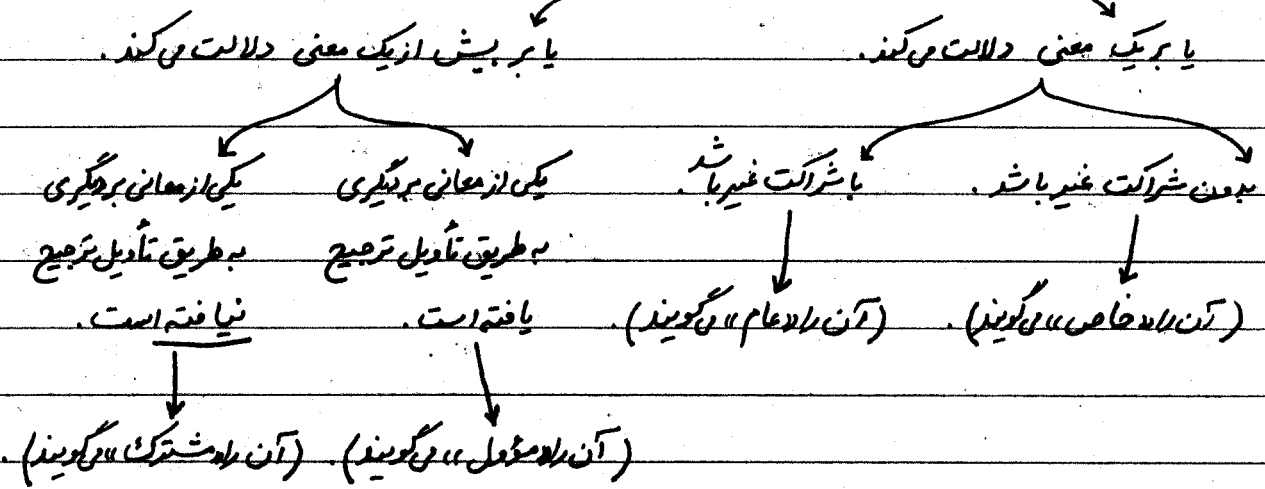 یا بر یک معنی دلالت می‌کند. یا بر بیش از یک معنی دلالت می‌کند.
بدون شراکت غیر باشد. با شراکت غیر باشد. یکی از معانی بر دیگری یکی از معانی بر دیگری
به طریق تأویل ترجیح به طریق تأویل ترجیح
یافته است. نیافته است.
(آن را «خاص» می‌گویند). (آن را «عام» می‌گویند).
(آن را «مؤول» می‌گویند). (آن را «مشترک» می‌گویند).